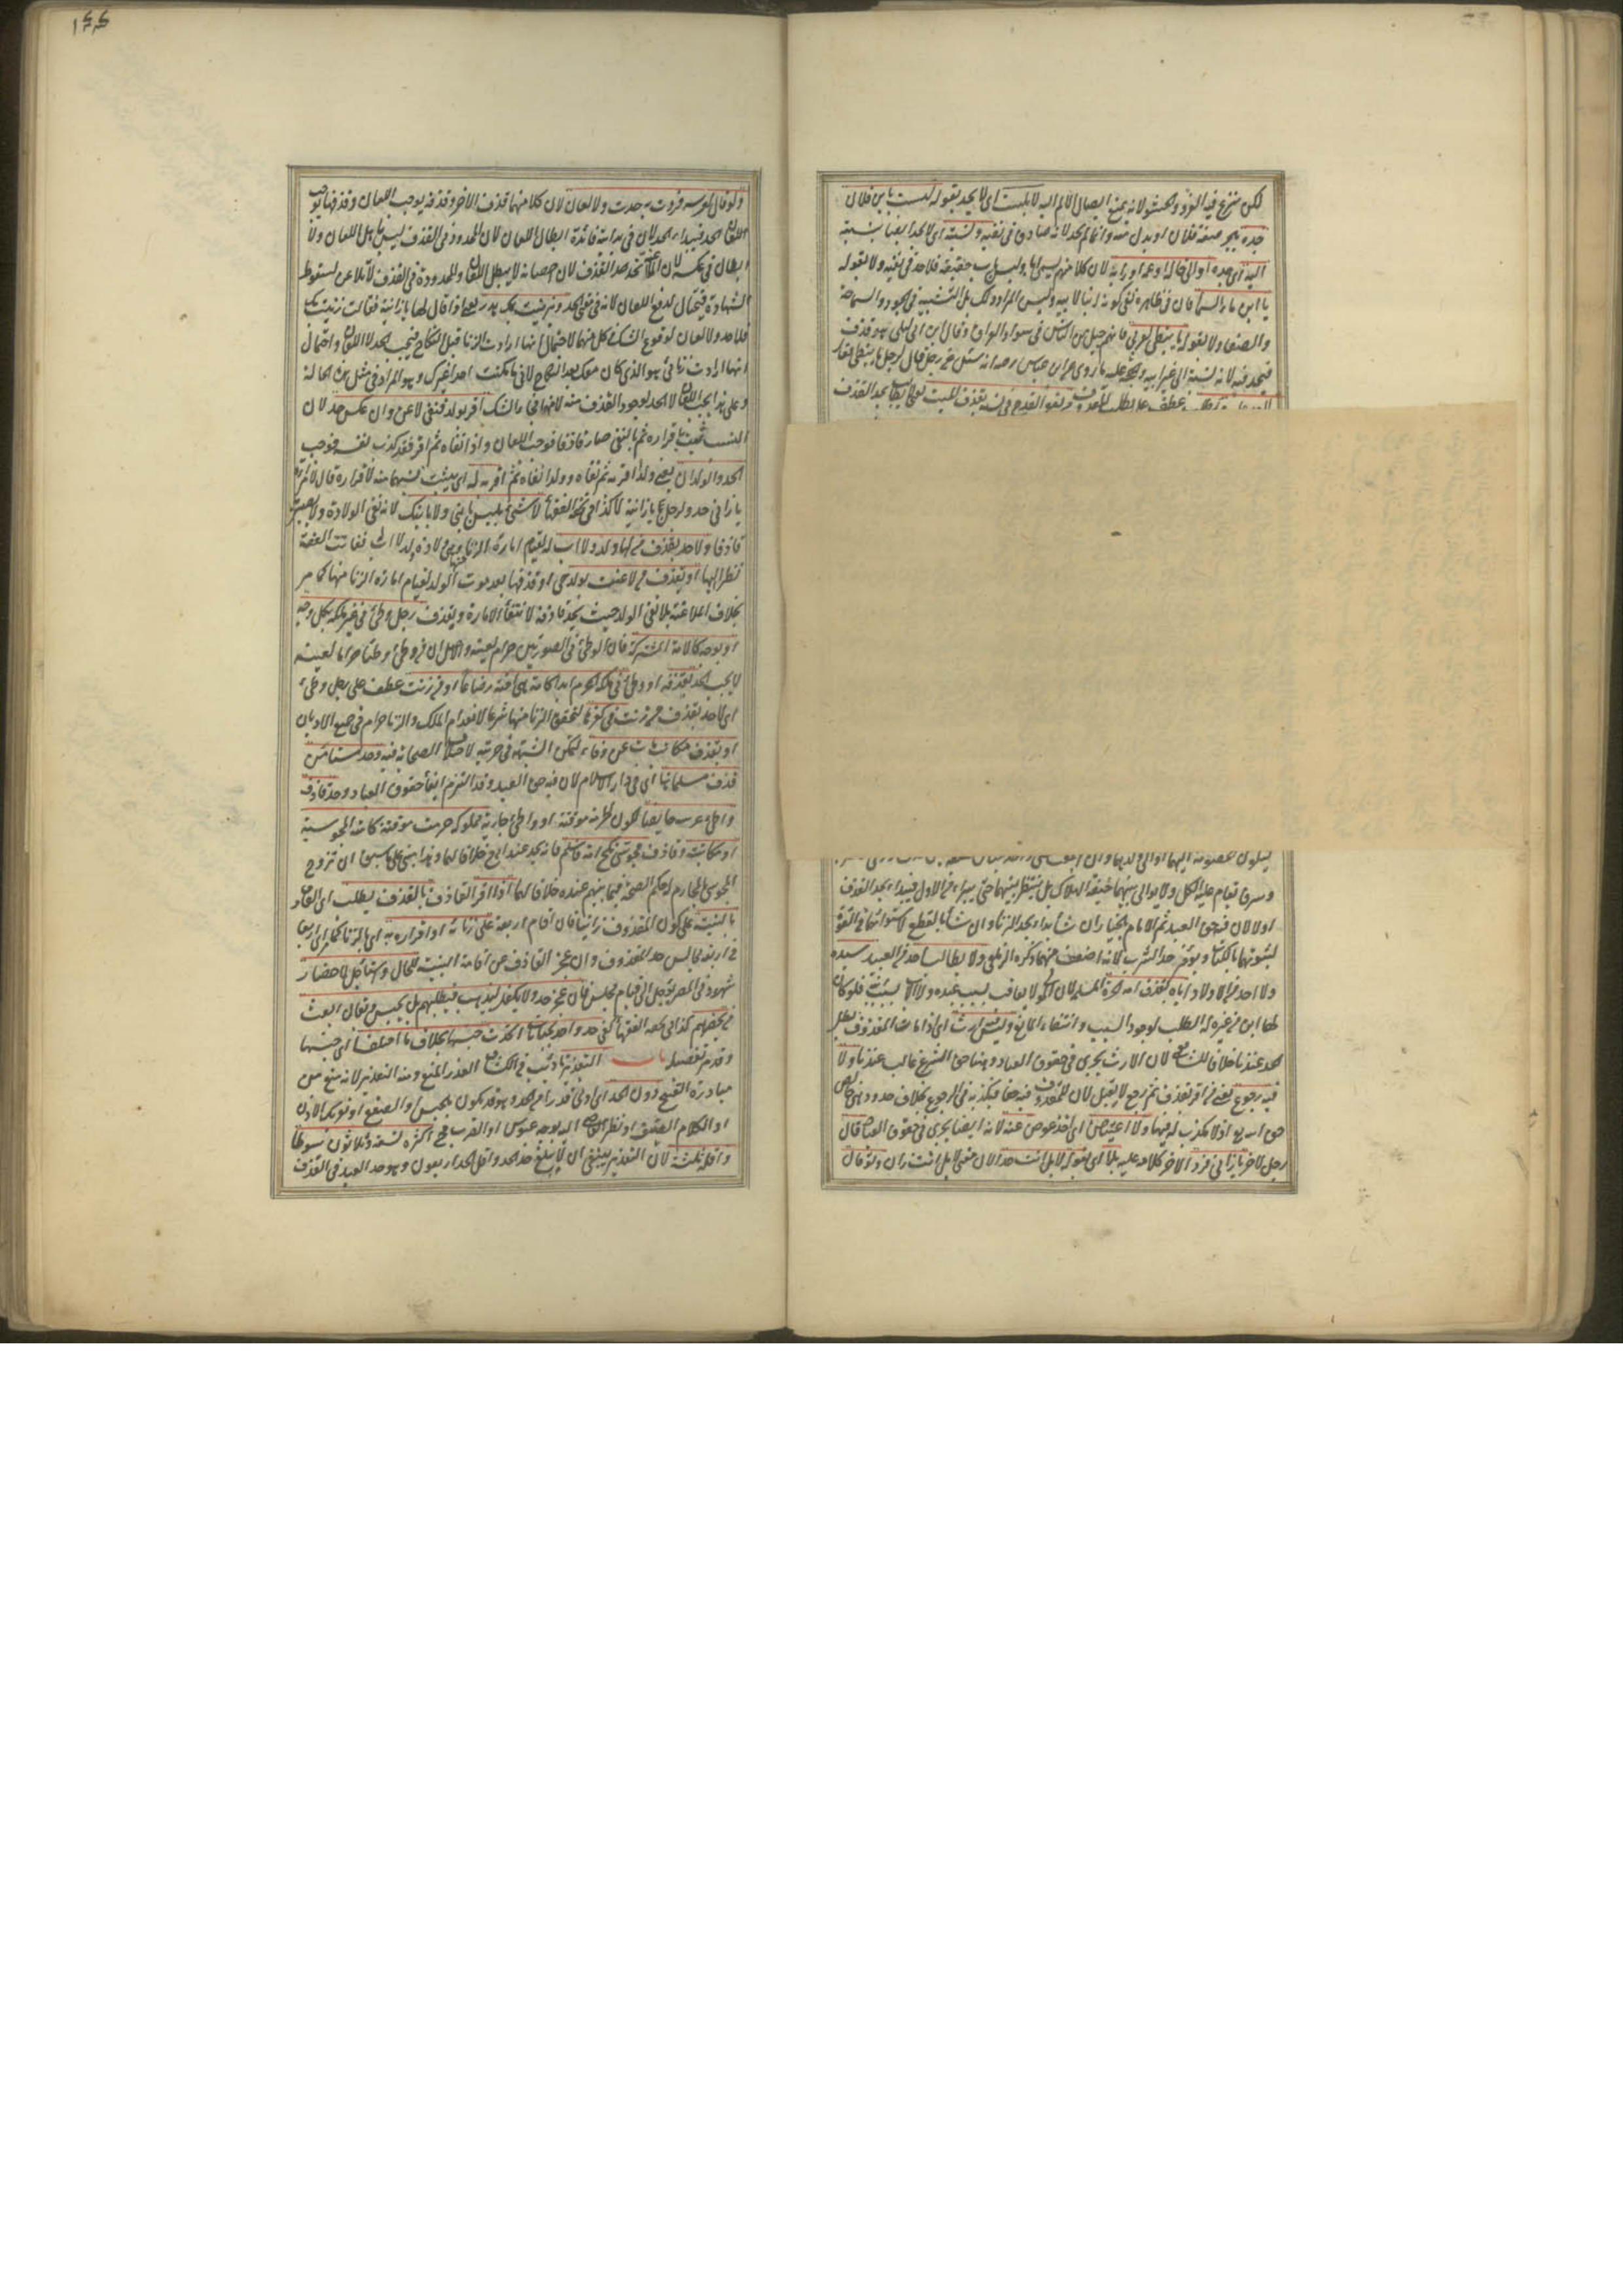 لكن يتنزع فيه الفرو والحشو لانه يمنع ايصال الالم اليه لا بلست اى لا يحد بقوله لست بابن فلان
جده بجر صفة فلان او بدل منه وانما لم يحد لانه صادق فى نفيه ونسبته اى لا يحد ايضا بنسبته
اليه اى جده او الى خاله او عمه او رابه لان كلا منهم يسمى ابا وليس باب حقيقة فلا حد فى نفيه ولا بقوله
يا ابن ماء السماء فان فى ظاهره نفى كونه ابنا لابيه وليس المراد ذلك بل التشبيه فى الجود والسماحة
والصفا ولا بقوله يا نبطى لعربى فانهم جيل من الناس فى سواد العراق وقال ابن ابى ليلى هو قذف
فيحد فيه لانه نسبة الى غير ابيه والحجة عليه ما روى عن ابن عباس رضه انه سئل عن رجل قال لرجل يا نبطى فقال
وسرق يقام عليه الكل ولا يوالى بينهما خيفة الهلاك بل ينتظر بينهما حتى يبراء من الاول فيبداء بحد القذف
اولا لان فيه حق العبد ثم الامام بالخيار ان شاء بداء بحد الزنا وان شاء بالقطع لاستوائهما فى القوة
لثبوتهما بالكتاب ويؤخر حد الشرب لانه اضعف منهما ذكره الزيلعى ولا يطالب احد من العبيد سيده
ولا احد من الاولاد اباه بقذف امه الحرة المسلمة لان المولى لا يعاقب بسبب عبده ولا الاب بسبب ابنه فلو كان
لها ابن من غيره له الطلب لوجود السبب وانتفاء المانع وليس فيه ارث اى اذا مات المقذوف بطل
الحد عندنا خلافا للشافعى لان الارث يجرى فى حقوق العباد وهنا حق الشرع غالب عندنا ولا
فيه رجوع يعنى من اقر بقذف ثم رجع لا يقبل لان للمقذوف فيه حقا فيكذبه فى الرجوع بخلاف حدود هى خالص
حق الله تع اذ لا مكذب له فيها ولا اعتياض اى اخذ عوض عنه لانه ايضا يجرى فى حقوق العباد قال
رجل لاخر يا زانى فرد الاخر كلامه عليه بلا اى بقوله لا بل انت حدا لان معنى لا بل انت زان ولو قال
١٤٤
ولو قال لعرسه فردت به حدت ولا لعان لان كلا منهما قذف الاخر وقذفه يوجب اللعان وقذفها يوجب
الحد فيبداء بالحد لان فى بدايته فائدة ابطال اللعان لان المحدود فى القذف ليس باهل اللعان ولا
ابطال فى عكسه لان الملاعنة تحد حد القذف لان احصانه لا يبطل اللعان والمحدودة فى القذف لا تلاعن لسقوط
الشهادة فيحتال لدفع اللعان لانه فى معنى الحد وبزنيت بك هدر يعنى اذا قال لها يا زانية فقالت زنيت بك
فلا حد ولا لعان لوقوع الشك فى كل منهما لاحتمال انها ارادت الزنا قبل النكاح فيجب الحد لا اللعان واحتمال
انها ارادت زناى هو الذى كان معك بعد النكاح لانى ما مكنت احدا غيرك وهو المراد فى مثل هذه الحالة
وعلى هذا يجب اللعان لا الحد لوجود القذف منه لا منها فجاء الشك اقر بولد فنفى لاعن وان عكس حد لان
النسب ثبت باقراره ثم بالنفى صار قاذفا فوجب اللعان واذا نفاه ثم اقر فقد كذب نفسه فوجب
الحد والولدان يعنى ولدا اقر به ثم نفاه وولدا نفاه ثم اقر به له اى يثبت نسبهما منه لاقراره قال لامراته
يا زانى حد ولرجل يا زانية لا كذا فى تحفة الفقهاء لا شئ بليس بابنى ولا بابنك لانه نفى الولادة ولا يصير به
قاذفا ولا حد بقذف من لها ولد ولا اب له لقيام امارة الزنا وهى ولادة ولد لا اب له ففاتت العفة
نظرا اليها او بقذف من لاعنت بولد حى او قذفها بعد موت الولد لقيام امارة الزنا منها كما مر
بخلاف الملاعنة بلا نفى الولد حيث يحد قاذفه لانتفاء الامارة وبقذف رجل وطئ فى غير ملكه بكل وجه
او بوجه كالامة المشتركة فان الوطئ فى الصورتين حرام لعينه والاصل ان من وطئ وطئا حراما لعينه
لا يجب الحد بقذفه او وطئ فى ملكه المحرم ابدا كامة هى اخته رضاعا او من زنت عطف على رجل وطئ
اى لا حد بقذف من زنت فى كفرها لتحقق الزنا منها شرعا لانعدام الملك والزنا حرام فى جميع الاديان
او بقذف مكاتب مات عن وفاء لتمكن الشبهة فى حريته لاختلاف الصحابة فيه وحد مستامن
قذف مسلما هنا اى فى دار الاسلام لان فيه حق العبد وقد التزم ايفاء حقوق العباد وحد قاذف
واطئ عرسه حايضا لكون الحرمة موقتة او واطئ جارية مملوكة حرمت موقتة كامته المجوسية
او مكاتبته وقاذف مجوسى نكح امه فاسلم فانه يحد عند ابى ح خلافا لهما وهذا مبنى على ما سبق ان تزوج
المجوسى بالمحارم له حكم الصحة فيما بينهم عنده خلافا لهما اذا اقر القاذف بالقذف يطلب اى القاذف
بالبينة على كون المقذوف زانيا فان اقام اربعة على زناه او اقراره به اى بالزنا كما مر اى اربعا
فى اربعة مجالس حد المقذوف وان عجز القاذف عن اقامة البينة للحال واستاجل لاحضار
شهود فى المصر يؤجل الى قيام المجلس فان عجز حد ولا يكفل ليذهب فيطلبهم بل يحبس ويقال ابعث
من يحضرهم كذا فى تحفة الفقهاء كفى حد واحد لجنايات اتحدت جنسها بخلاف ما اختلف اى جنسها
وقد مر تفصيله باب التعزير تاديب فى الكشاف العزر المنع ومنه التعزير لانه منع من
مباردة القبيح دون الحد اى ادنى قدرا من الحد وهو قد يكون بالحبس او الصفع او تعريك الاذن
او الكلام العنيف او نظر القاضى اليه بوجه عبوس او الضرب فح اكثره تسعة وثلاثون سوطا
واقله ثلثة لان التعزير ينبغى ان لا يبلغ حد الحد واقل الحد اربعون وهو حد العبد فى القذف